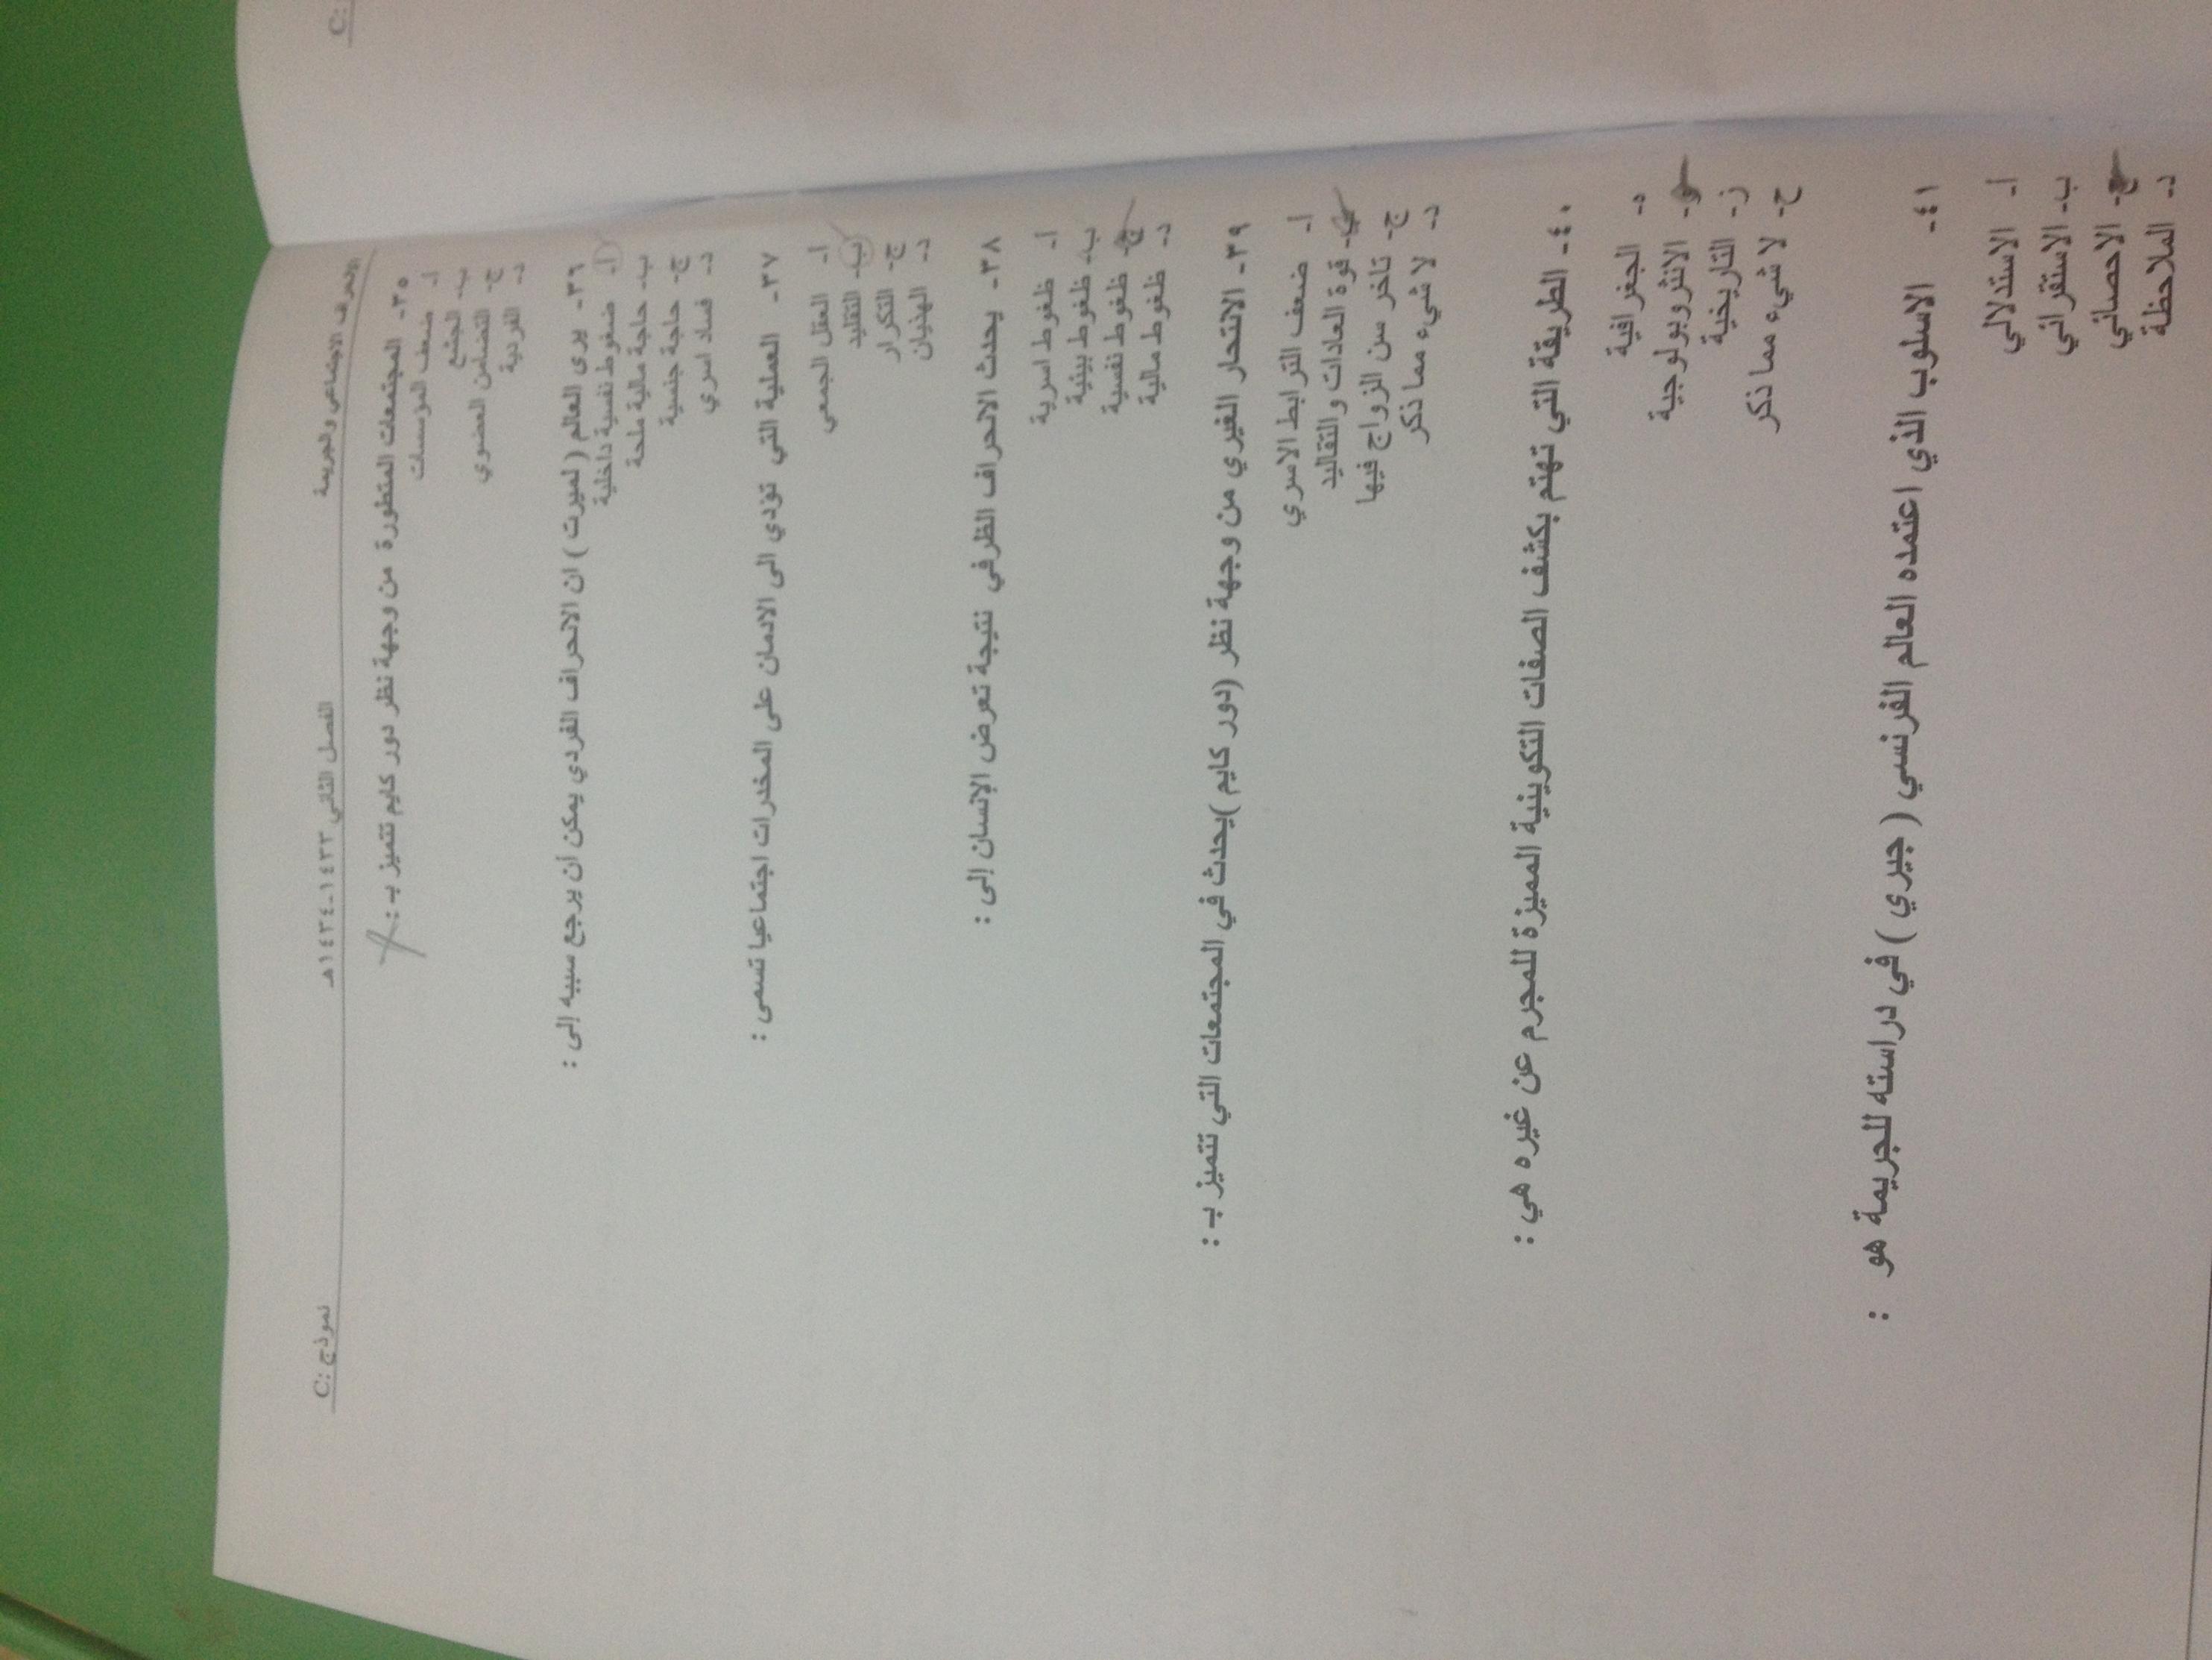 الانحراف الاجتماعي والجريمة الفصل الثاني ١٤٣٣-١٤٣٤هـ نموذج C:
٣٥- المجتمعات المتطورة من وجهة نظر دور كايم تتميز بـ :
أ- ضعف المؤسسات
ب- الجشع
ج- التضامن العضوي
د- الفردية
٣٦- يرى العالم ( لميرت ) ان الانحراف الفردي يمكن أن يرجع سببه إلى :
أ- ضغوط نفسية داخلية
ب- حاجة مالية ملحة
ج- حاجة جنسية
د- فساد اسري
٣٧- العملية التي تؤدي الى الادمان على المخدرات اجتماعيا تسمى :
أ- العقل الجمعي
ب- التقليد
ج- التكرار
د- الهذيان
٣٨- يحدث الانحراف الظرفي نتيجة تعرض الإنسان إلى :
أ- ظغوط اسرية
ب- ظغوط بيئية
ج- ظغوط نفسية
د- ظغوط مالية
٣٩- الانتحار الغيري من وجهة نظر (دور كايم )يحدث في المجتمعات التي تتميز بـ :
أ- ضعف الترابط الاسري
ب- قوة العادات والتقاليد
ج- تاخر سن الزواج فيها
د- لا شيء مما ذكر
٤٠- الطريقة التي تهتم بكشف الصفات التكوينية المميزة للمجرم عن غيره هي :
ه- الجغرافية
و- الانثروبولوجية
ز- التاريخية
ح- لا شيء مما ذكر
٤١- الاسلوب الذي اعتمده العالم الفرنسي ( جيري ) في دراسته للجريمة هو :
أ- الاستدلالي
ب- الاستقرائي
ج- الاحصائي
د- الملاحظة
C: